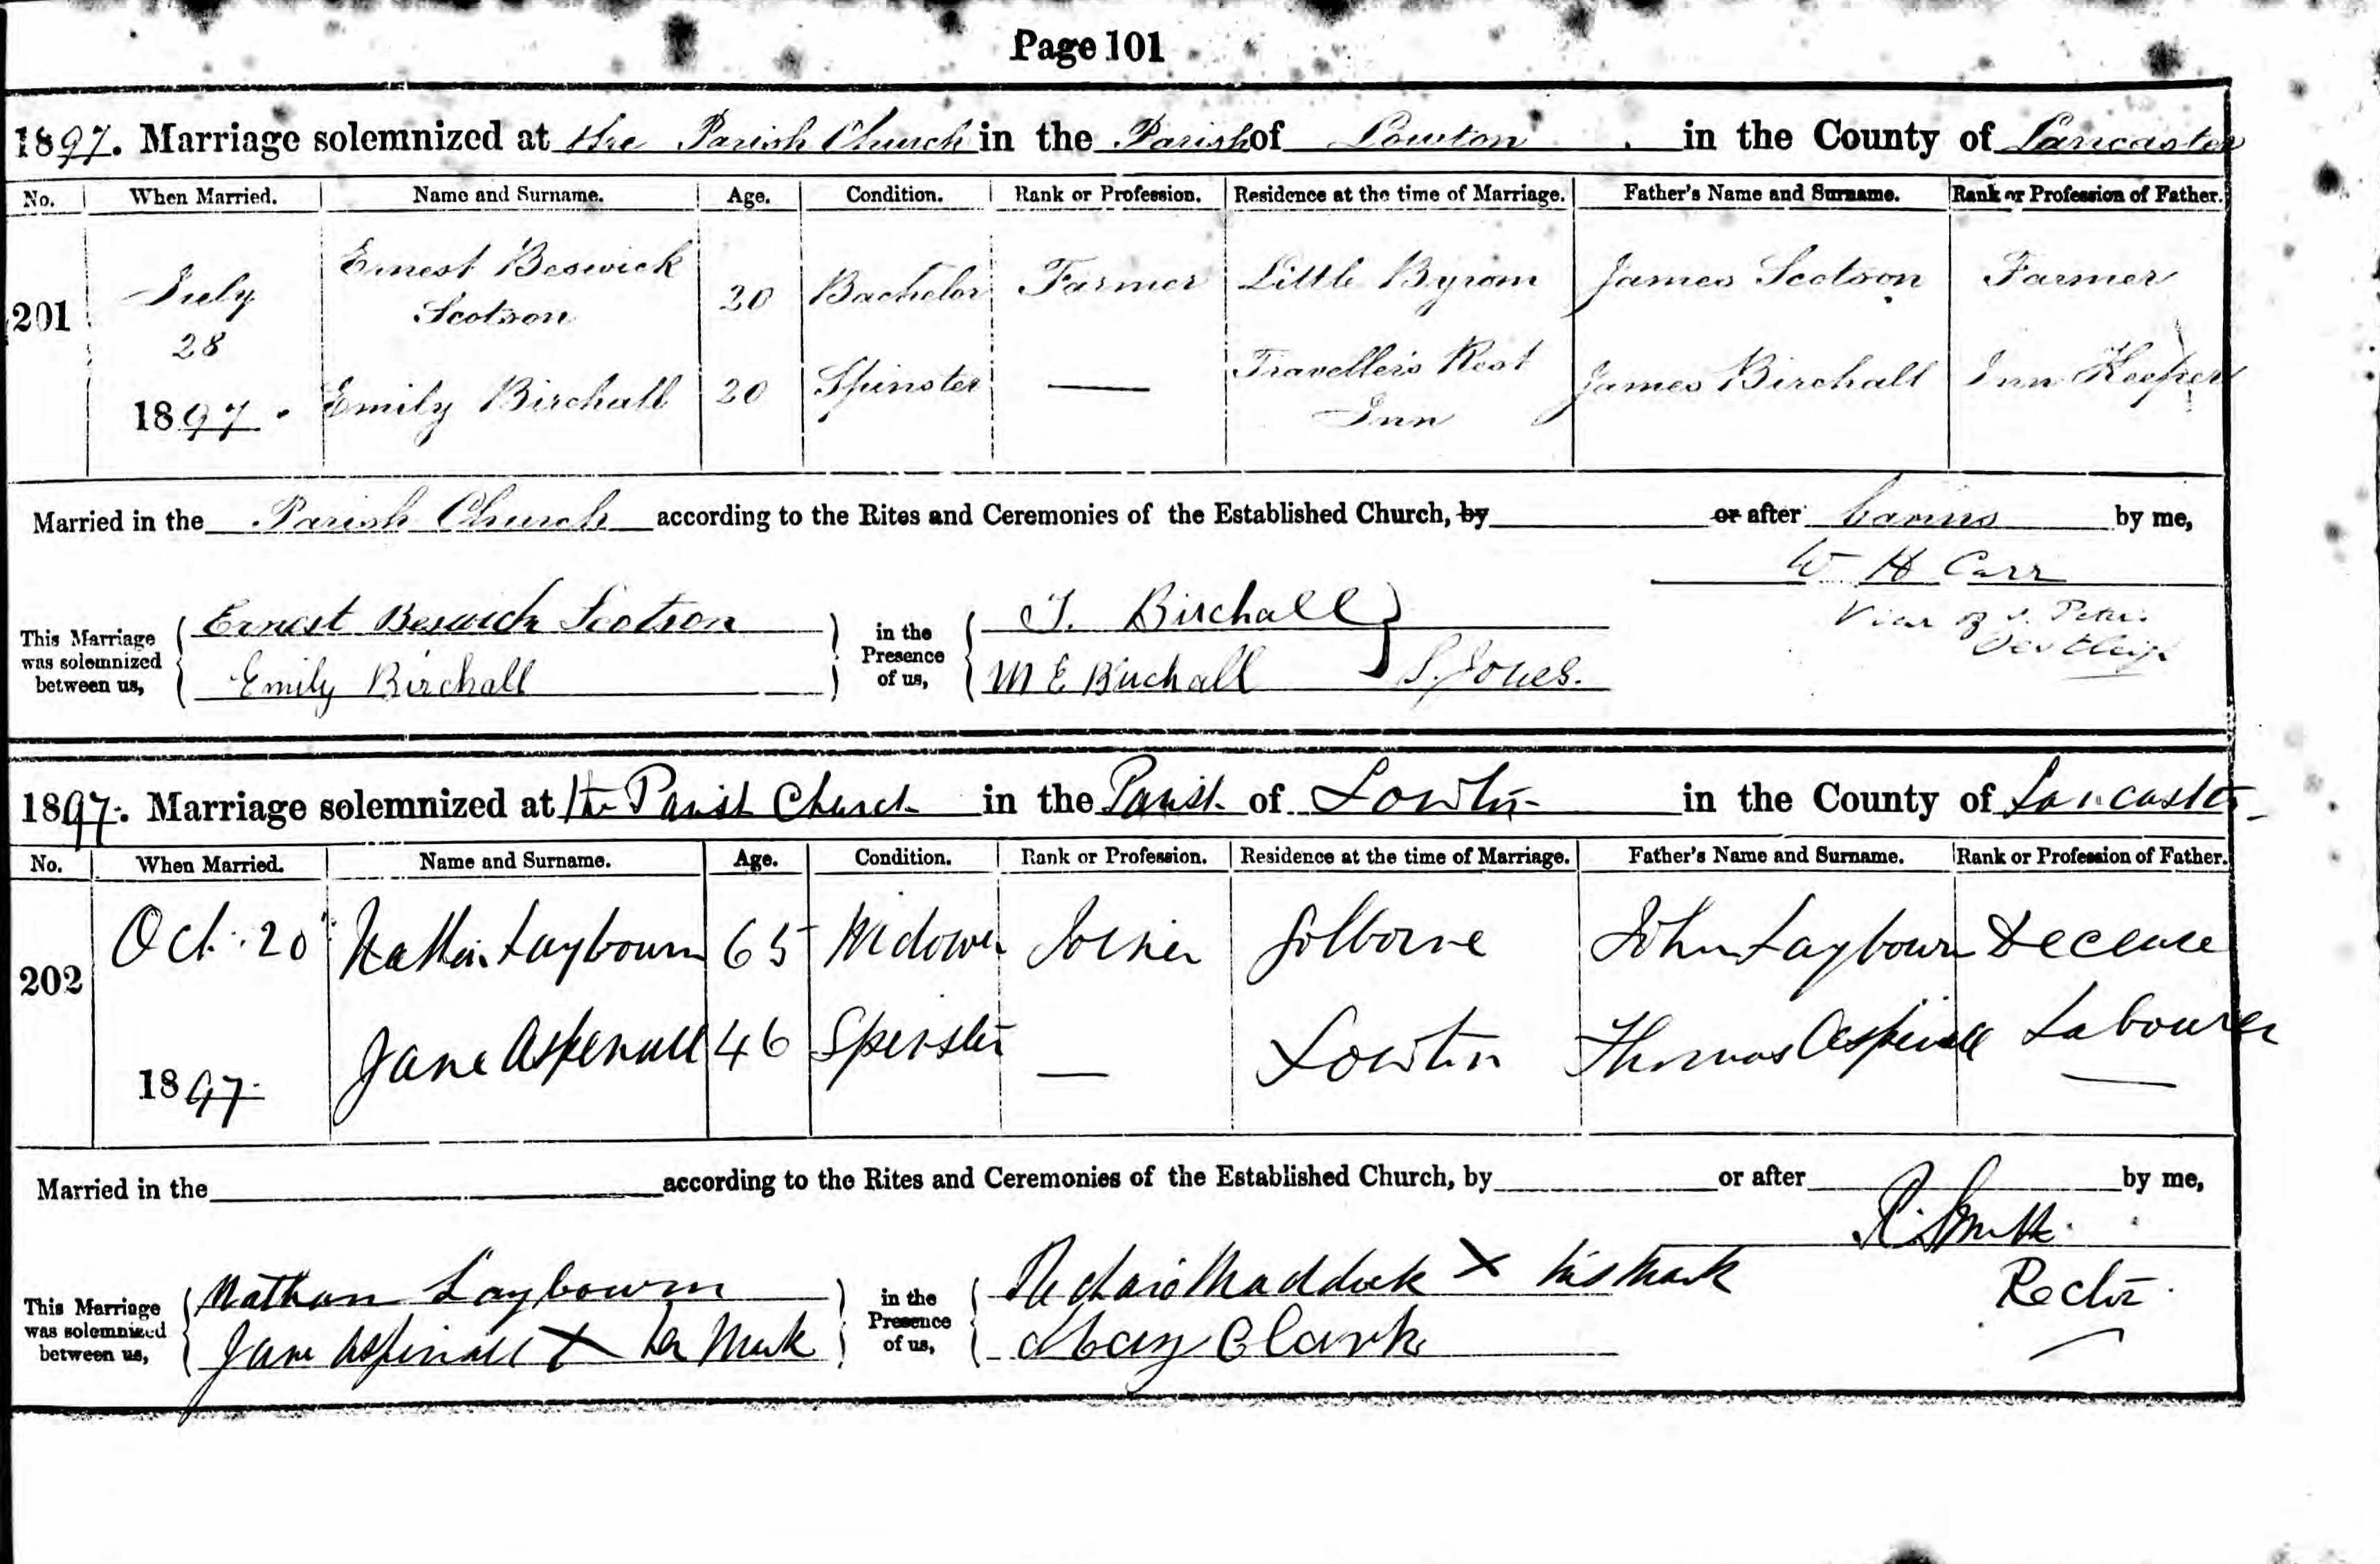 Page 101
1897. Marriage solemnized at the Parish Church in the Parish of Lowton in the County of Lancaster
No. When Married. Name and Surname. Age. Condition. Rank or Profession. Residence at the time of Marriage. Father's Name and Surname. Rank or Profession of Father.
201 July 28 1897. Ernest Beswick Scotson 20 Bachelor Farmer Little Byrom James Scotson Farmer
Emily Birchall 20 Spinster — Traveller's Rest Inn James Birchall Inn Keeper
Married in the Parish Church according to the Rites and Ceremonies of the Established Church, by or after banns by me,
W H Carr
Vicar of S. Peter
This Marriage was solemnized between us, Ernest Beswick Scotson in the Presence of us, J. Birchall
Emily Birchall M E Birchall S. Jones.
1897. Marriage solemnized at the Parish Church in the Parish of Lowton in the County of Lancaster
No. When Married. Name and Surname. Age. Condition. Rank or Profession. Residence at the time of Marriage. Father's Name and Surname. Rank or Profession of Father.
202 Oct. 20 1897. Nathan Laybourn 65 Widower Joiner Golborne John Laybourn Decease
Jane Aspinall 46 Spinster — Lowton Thomas Aspinall Labourer
Married in the according to the Rites and Ceremonies of the Established Church, by or after by me,
R. Smith.
Rector.
This Marriage was solemnized between us, Nathan Laybourn in the Presence of us, Richard Maddock X his Mark
Jane Aspinall X her Mark Mary Clark